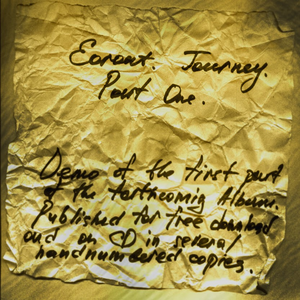 Eoront. Journey.
Part One.
Demo of the first part
of the forthcomig Album.
Published for free download
and on CD in several
handnumbered copies.